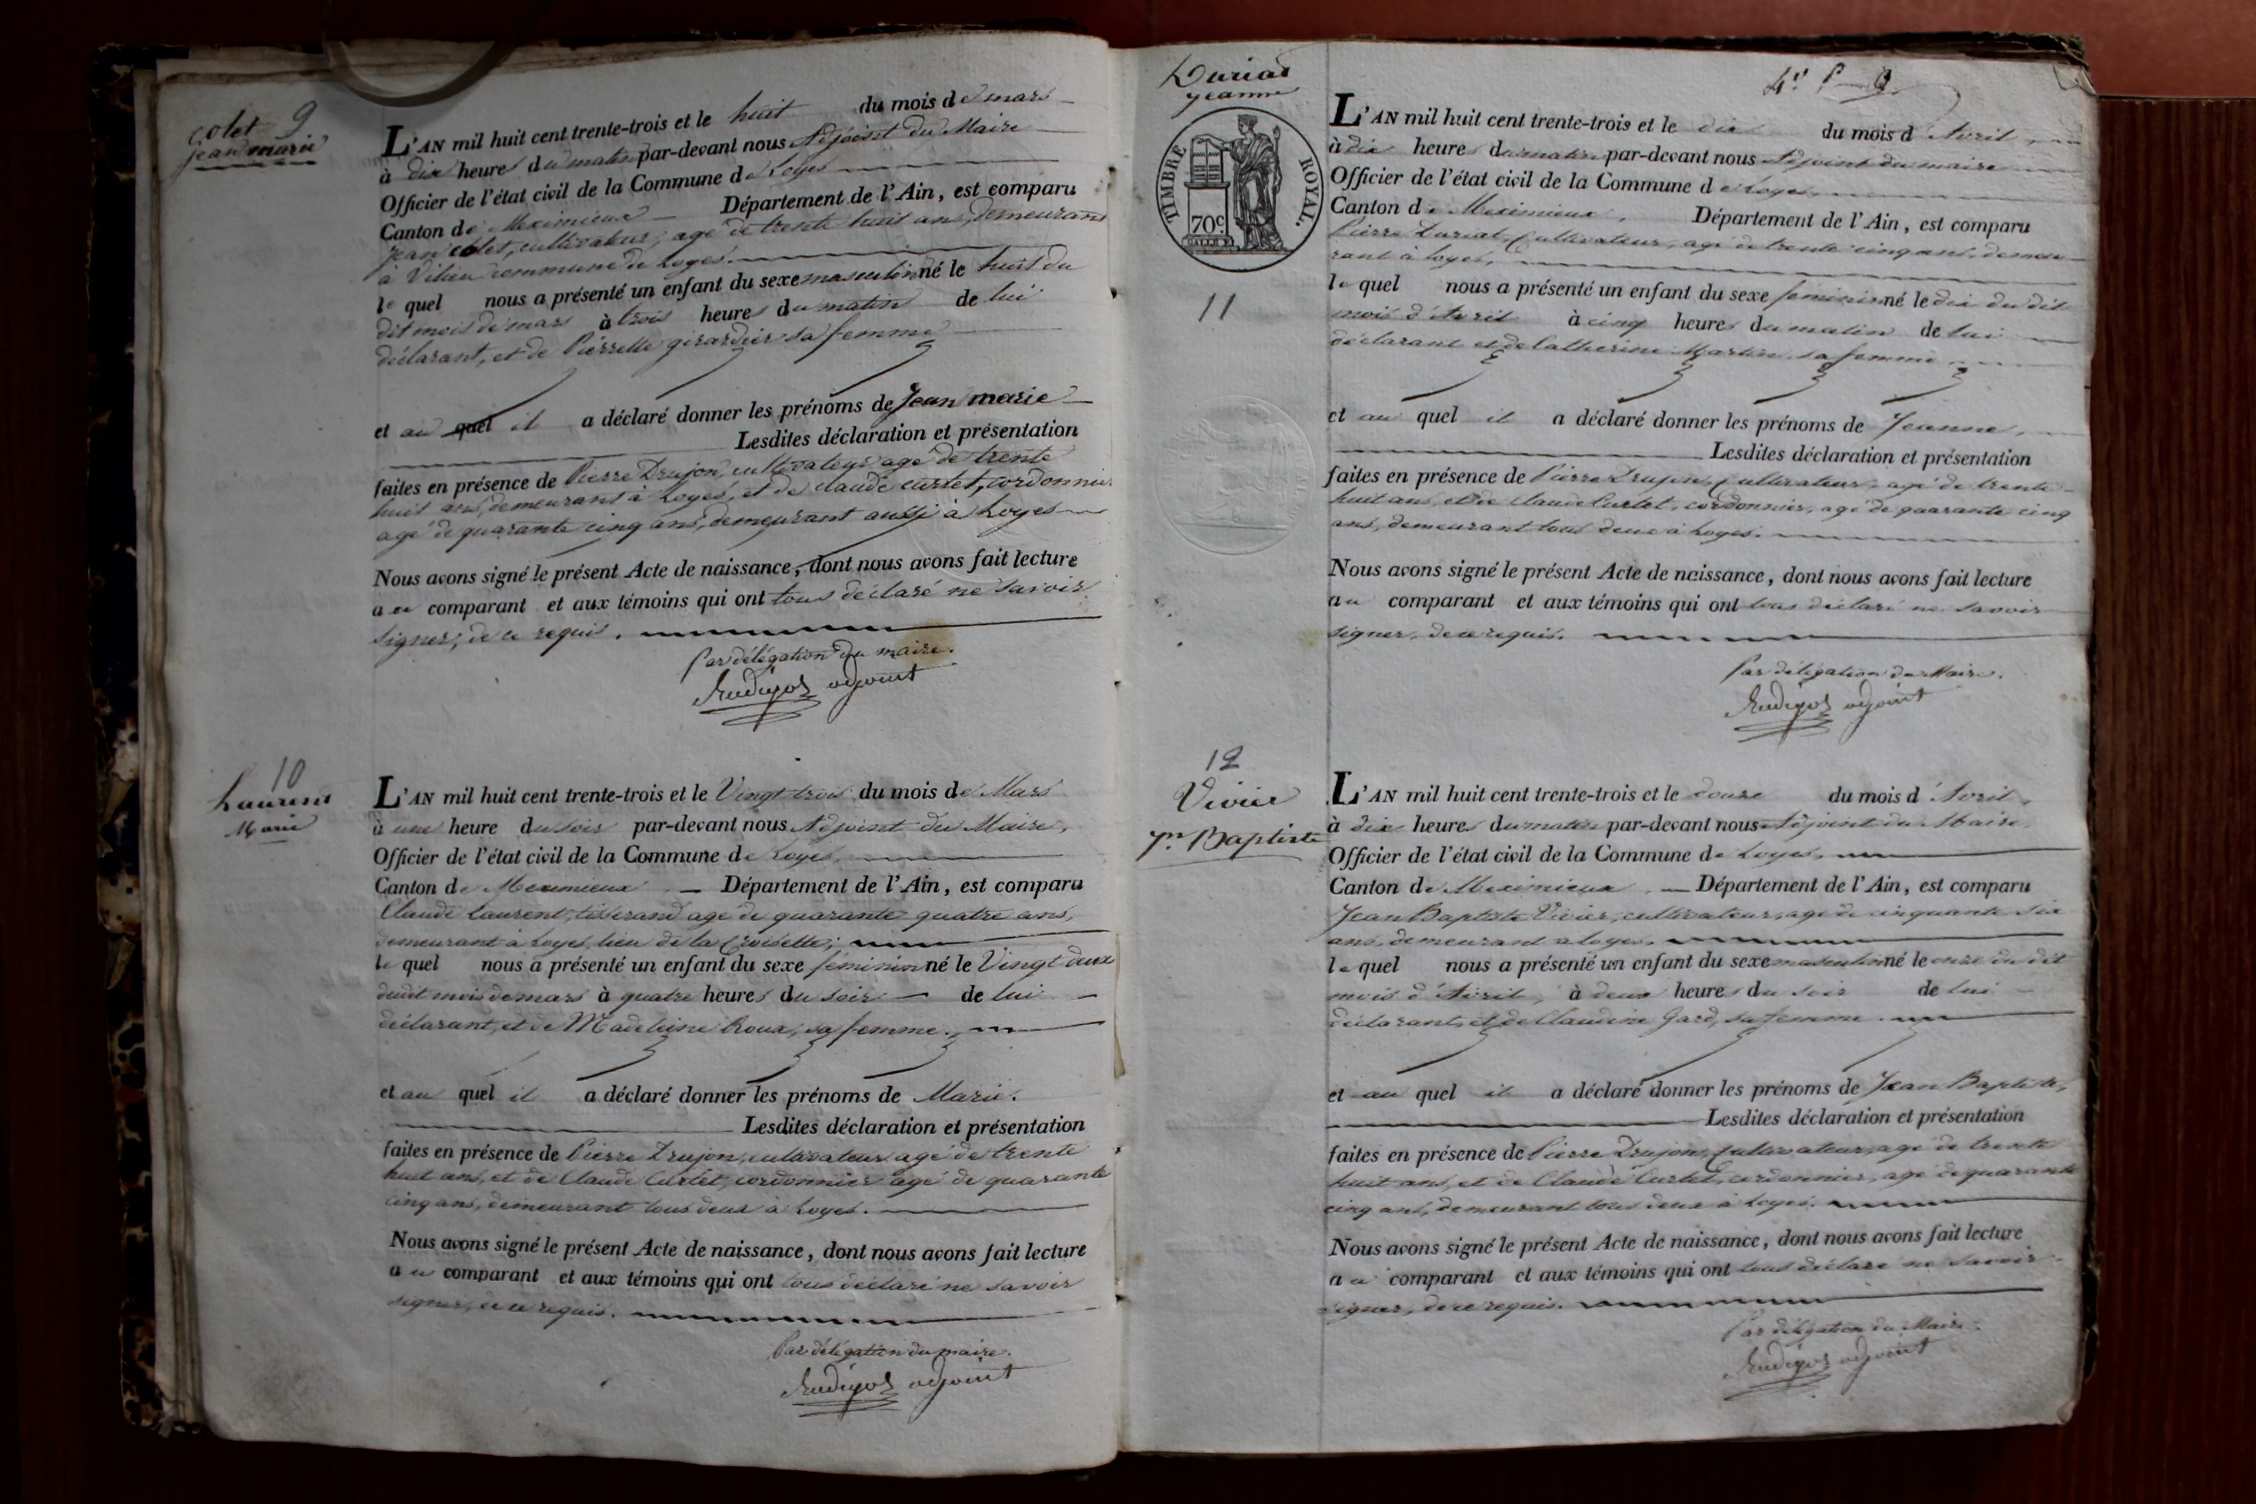 colet 9
jean marie
L'AN mil huit cent trente-trois et le huit du mois de mars
à dix heures du matin par-devant nous Adjoint du Maire
Officier de l'état civil de la Commune de Loyes
Canton de Meximieux Département de l'Ain, est comparu
jean colet, cultivateur, agé de trente huit ans, demeurant
à Vilieu commune de Loyes.
le quel nous a présenté un enfant du sexe masculin né le huit du
dit mois de mars à trois heures du matin de lui
déclarant, et de Pierrette girardier sa femme
et au quel il a déclaré donner les prénoms de Jean marie
Lesdites déclaration et présentation
faites en présence de Pierre Drujon, cultivateur agé de trente
huit ans, demeurant à Loyes, et de claude curtet, cordonnier
agé de quarante cinq ans, demeurant aussi à Loyes
Nous avons signé le présent Acte de naissance, dont nous avons fait lecture
au comparant et aux témoins qui ont tous déclaré ne savoir
signer, de ce requis.
Par délégation du maire.
adjoint
10
Laurent
Marie
L'AN mil huit cent trente-trois et le Vingt trois du mois de Mars
à une heure du soir par-devant nous Adjoint du Maire,
Officier de l'état civil de la Commune de Loyes
Canton de Meximieux Département de l'Ain, est comparu
Claude Laurent, tisserand agé de quarante quatre ans,
demeurant à Loyes, lieu de la Croisette;
le quel nous a présenté un enfant du sexe féminin né le Vingt deux
dudit mois de mars à quatre heures du soir de lui
déclarant, et de Madeleine Roux, sa femme.
et au quel il a déclaré donner les prénoms de Marie.
Lesdites déclaration et présentation
faites en présence de Pierre Drujon, cultivateur agé de trente
huit ans, et de Claude Curtet, cordonnier agé de quarante
cinq ans, demeurant tous deux à Loyes.
Nous avons signé le présent Acte de naissance, dont nous avons fait lecture
au comparant et aux témoins qui ont tous déclaré ne savoir
signer, de ce requis.
Par délégation du maire.
adjoint
Duriat
jeanne
TIMBRE ROYAL.
70c
11
L'AN mil huit cent trente-trois et le dix du mois d'Avril
à dix heures du matin par-devant nous Adjoint du maire
Officier de l'état civil de la Commune de Loyes,
Canton de Meximieux, Département de l'Ain, est comparu
Pierre Duriat, Cultivateur, agé de trente cinq ans, demeu-
rant à Loyes,
le quel nous a présenté un enfant du sexe féminin né le dix du dit
mois d'Avril à cinq heures du matin de lui
déclarant et de Catherine Martin sa femme
et au quel il a déclaré donner les prénoms de Jeanne,
Lesdites déclaration et présentation
faites en présence de Pierre Drujon, Cultivateur, agé de trente
huit ans, et de Claude Curtet, cordonnier, agé de quarante cinq
ans, demeurant tous deux à Loyes.
Nous avons signé le présent Acte de naissance, dont nous avons fait lecture
au comparant et aux témoins qui ont tous déclaré ne savoir
signer, de ce requis.
Par délégation du Maire.
adjoint
12
Vivier
Jn Baptiste
L'AN mil huit cent trente-trois et le douze du mois d'Avril,
à dix heures du matin par-devant nous Adjoint du Maire
Officier de l'état civil de la Commune de Loyes,
Canton de Meximieux Département de l'Ain, est comparu
Jean Baptiste Vivier, cultivateur, agé de cinquante six
ans, demeurant a Loyes.
le quel nous a présenté un enfant du sexe masculin né le onze du dit
mois d'Avril, à deux heures du soir de lui
déclarant, et de Claudine Gard, sa femme.
et au quel il a déclaré donner les prénoms de Jean Baptiste,
Lesdites déclaration et présentation
faites en présence de Pierre Drujon, Cultivateur, agé de trente
huit ans, et de Claude Curtet, cordonnier, agé de quarante
cinq ans, demeurant tous deux à Loyes.
Nous avons signé le présent Acte de naissance, dont nous avons fait lecture
au comparant et aux témoins qui ont tous déclaré ne savoir
signer, de ce requis.
Par délégation du Maire.
adjoint